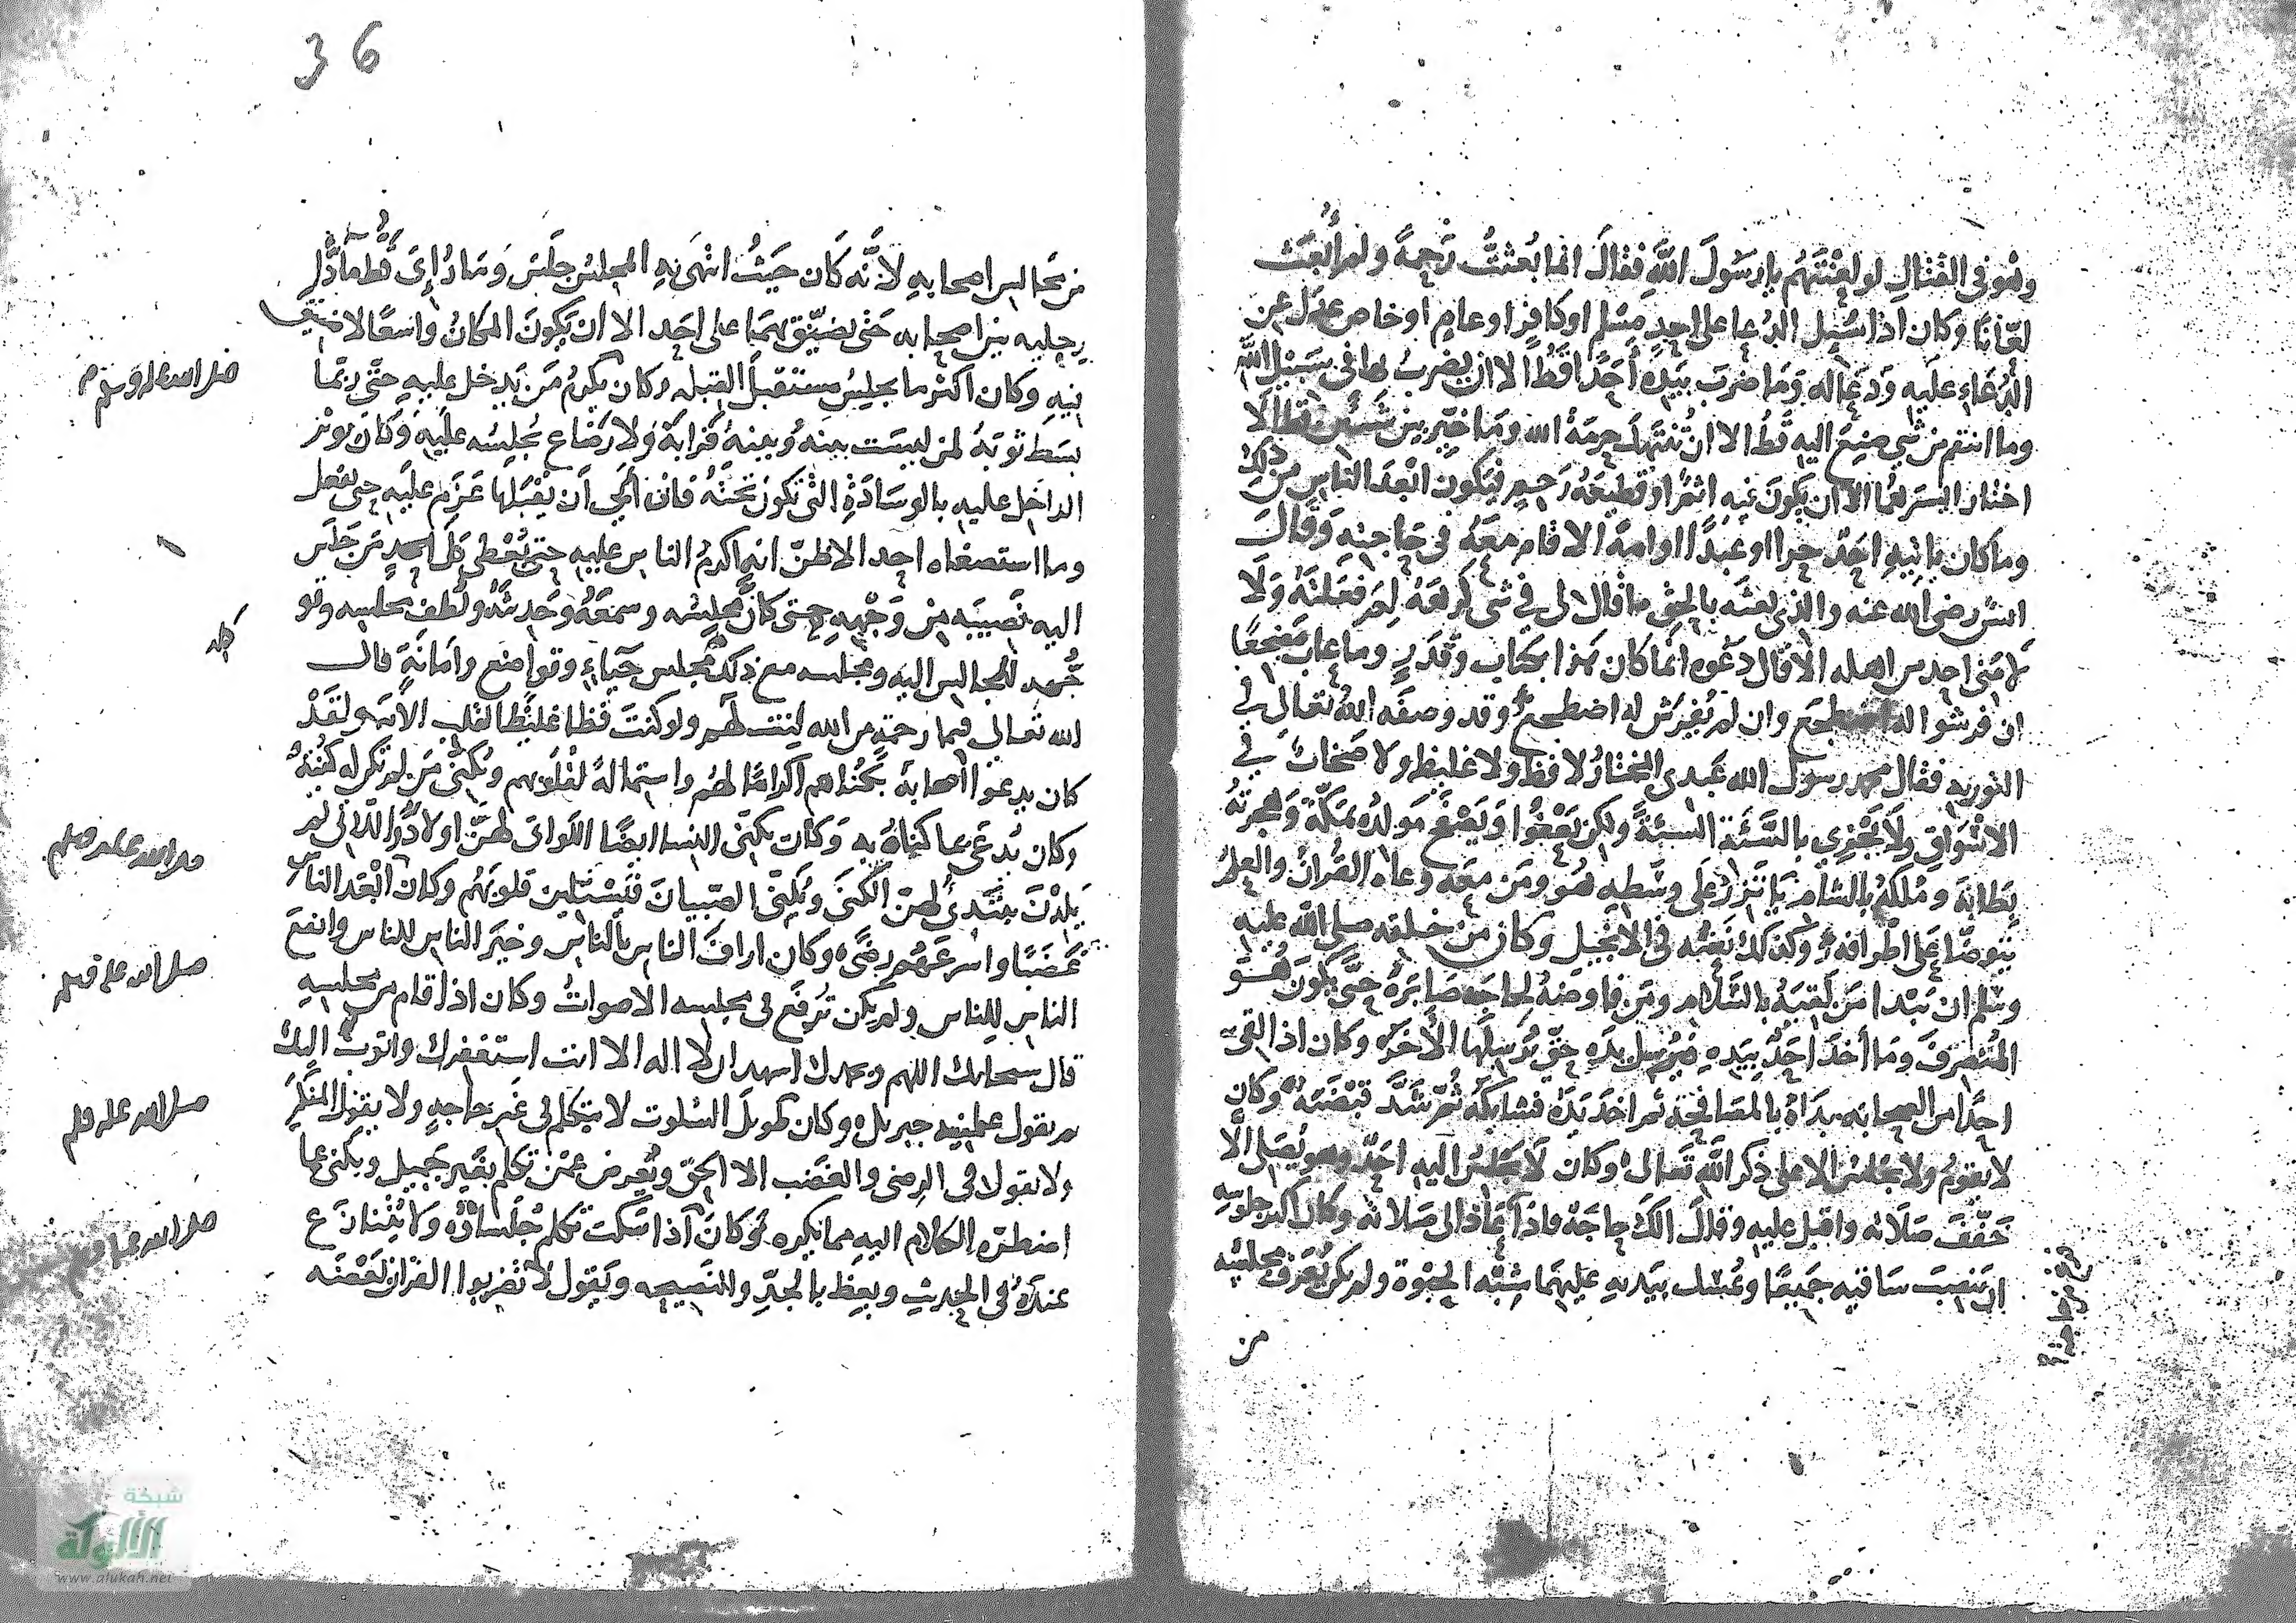 وهو في القتال لو لعنتهم يا رسول الله فقال انما بعثت رحمة ولم أبعث
لعّانا وكان اذا سُيل الدعا على احد مسلم او كافر او عام او خاص عدل عن
الدُعاء عليه ودعا له وما ضرب بيده أحدًا قطّ الا ان يضرب بها في سبيل الله
وما انتقم من شي صنع اليه قطُّ الا ان تُنتهك حرمة الله وما خيّر بين شيئين قط الا
اختار ايسرهما الا ان يكون فيه اثمٌ او قطيعة رحم فيكون ابعد الناس من ذلك
وما كان ياتيه احدٌ حرا او عبدًا او امة الا قام معه في حاجته وقال
انسٌ رضي الله عنه والذي بعثه بالحق ما قال لي في شي كرهه لم فعلته ولا
لامني احد من اهله الا قال دعوه انما كان هذا بكتاب وقدر وما عاب مضجعًا
ان فرشوا له اضطجع وان لم يُفرش له اضطجع وقد وصفه الله تعالى في
التورية فقال محمد رسول الله عبدي المختار لا فظ ولا غليظ ولا صخاب في
الاسواق ولا يجزي بالسّيّئة السيئة ولكن يعفوا ويصفح مولده بمكّة وهجرته
بطابة ومُلكهُ بالشام ياتزر على وسَطه هو ومن معه دعاه القرآن والعلم
يتوضّا على اطرافه وكذلك نعته في الانجيل وكان من خلقه صلى الله عليه
وسلم ان يبدا من لقيه بالسّلام ومن فاوضه لحاجة صابره حتّى يكون هو
المنصرف وما أخذ احدٌ بيده فيُرسل يده حتى يُرسلها الآخر وكان اذا لقي
احدًا من الصحابه بداهُ بالمصافحة ثم اخذ يده فشابكه ثمّ شدّ قبضته وكان
لا يقوم ولا يجلس الا على ذكر الله تعالى وكان لا يجلس اليه احدٌ وهو يُصلي الا
خَفّف صلاته واقبل عليه وقال الك حاجة فاذا عاد الى صلاته وكان اكثر جلوسه
ان ينصب ساقيه جميعًا ويمسك بيديه عليهما شِبْه الحبْوة ولم يكن يُعرف مجلسه
من
من مجالس اصحابه لأنّه كان حيثُ انتهى به المجلس جلسَ وما رُإيَ قطّ مادًّا
رجليه بين اصحابه حتّى يضيّق بهما على احد الا ان يكونَ المكانُ واسعًا لا ضيق
فيه وكان اكثر ما يجلس مستقبل القبله وكان يكرمُ من يدخل عليه حتّى ربّما
بسط ثوبهُ لمن ليست بينه وبينهُ قرابةٌ ولا رضاع يُجلسُه عليه وكان يوثر
الداخل عليه بالوسادة التي تكون تحته فان أبى أن يقبلها عزم عليه حتى يفعل
وما استصفاه احد الا ظنّ انه اكرمُ الناس عليه حتى يُعطى كل احد من جلس
اليه نصيبه من وجهه حتى كان مجلسه وسمعهُ وحديثه ولطف مجلسه وتو
جُّهه للجالس اليه ومجلسه مع ذلك مجلس حياء وتواضع وامانةٍ قال
الله تعالى فبما رحمة من الله لنت لهم ولو كنت فظا غليظ القلب الآيه ولقد
كان يدعوا أصحابهُ بكُناهم اكرامًا لهُم واستمالةً لقلوبهم ويُكني من لم تكن له كُنيةٌ
وكان يُدعى بما كناهُ به وكان يكنّى النسا ايضًا اللواتي لهنّ اولادٌ واللاتي لم
يلدْنَ يبتدئُ لهنّ الكنى ويُكنّى الصبيان فيستلين قلوبهُم وكان ابْعد الناس
غضبًا واسرعهُم رضًى وكان اراف الناس بالناس وخير الناس للناس وانفع
الناس للناس ولم يكن تُرفع في مجلسه الاصواتُ وكان اذا قام من مجلسهِ
قال سبحانك اللهم وبحمدك اشهد ان لا اله الا انت استغفرك واتوب اليك
ثم يقول علمنيه جبريل وكان طويلَ السُكوت لا يتكلم في غير حاجةٍ ولا يقول المنكر
ولا يقول في الرضى والغضب الا الحقّ ويُعرض عمّن تكلم بغير جميل ويكنى عما
اضطره الكلام اليه مما يكره وكان اذا سكت تكلم جُلساؤه ولا يُتنازع
عنده في الحديث ويعظ بالجدِّ والنصيحه ويقول لا تضربوا القران بعضه
صلى الله عليه وسلم
كله
صلى الله عليه وسلم
صلى الله عليه وسلم
صلى الله عليه وسلم
صلى الله عليه وسلم
36
شبكة
الألوكة
www.alukah.net